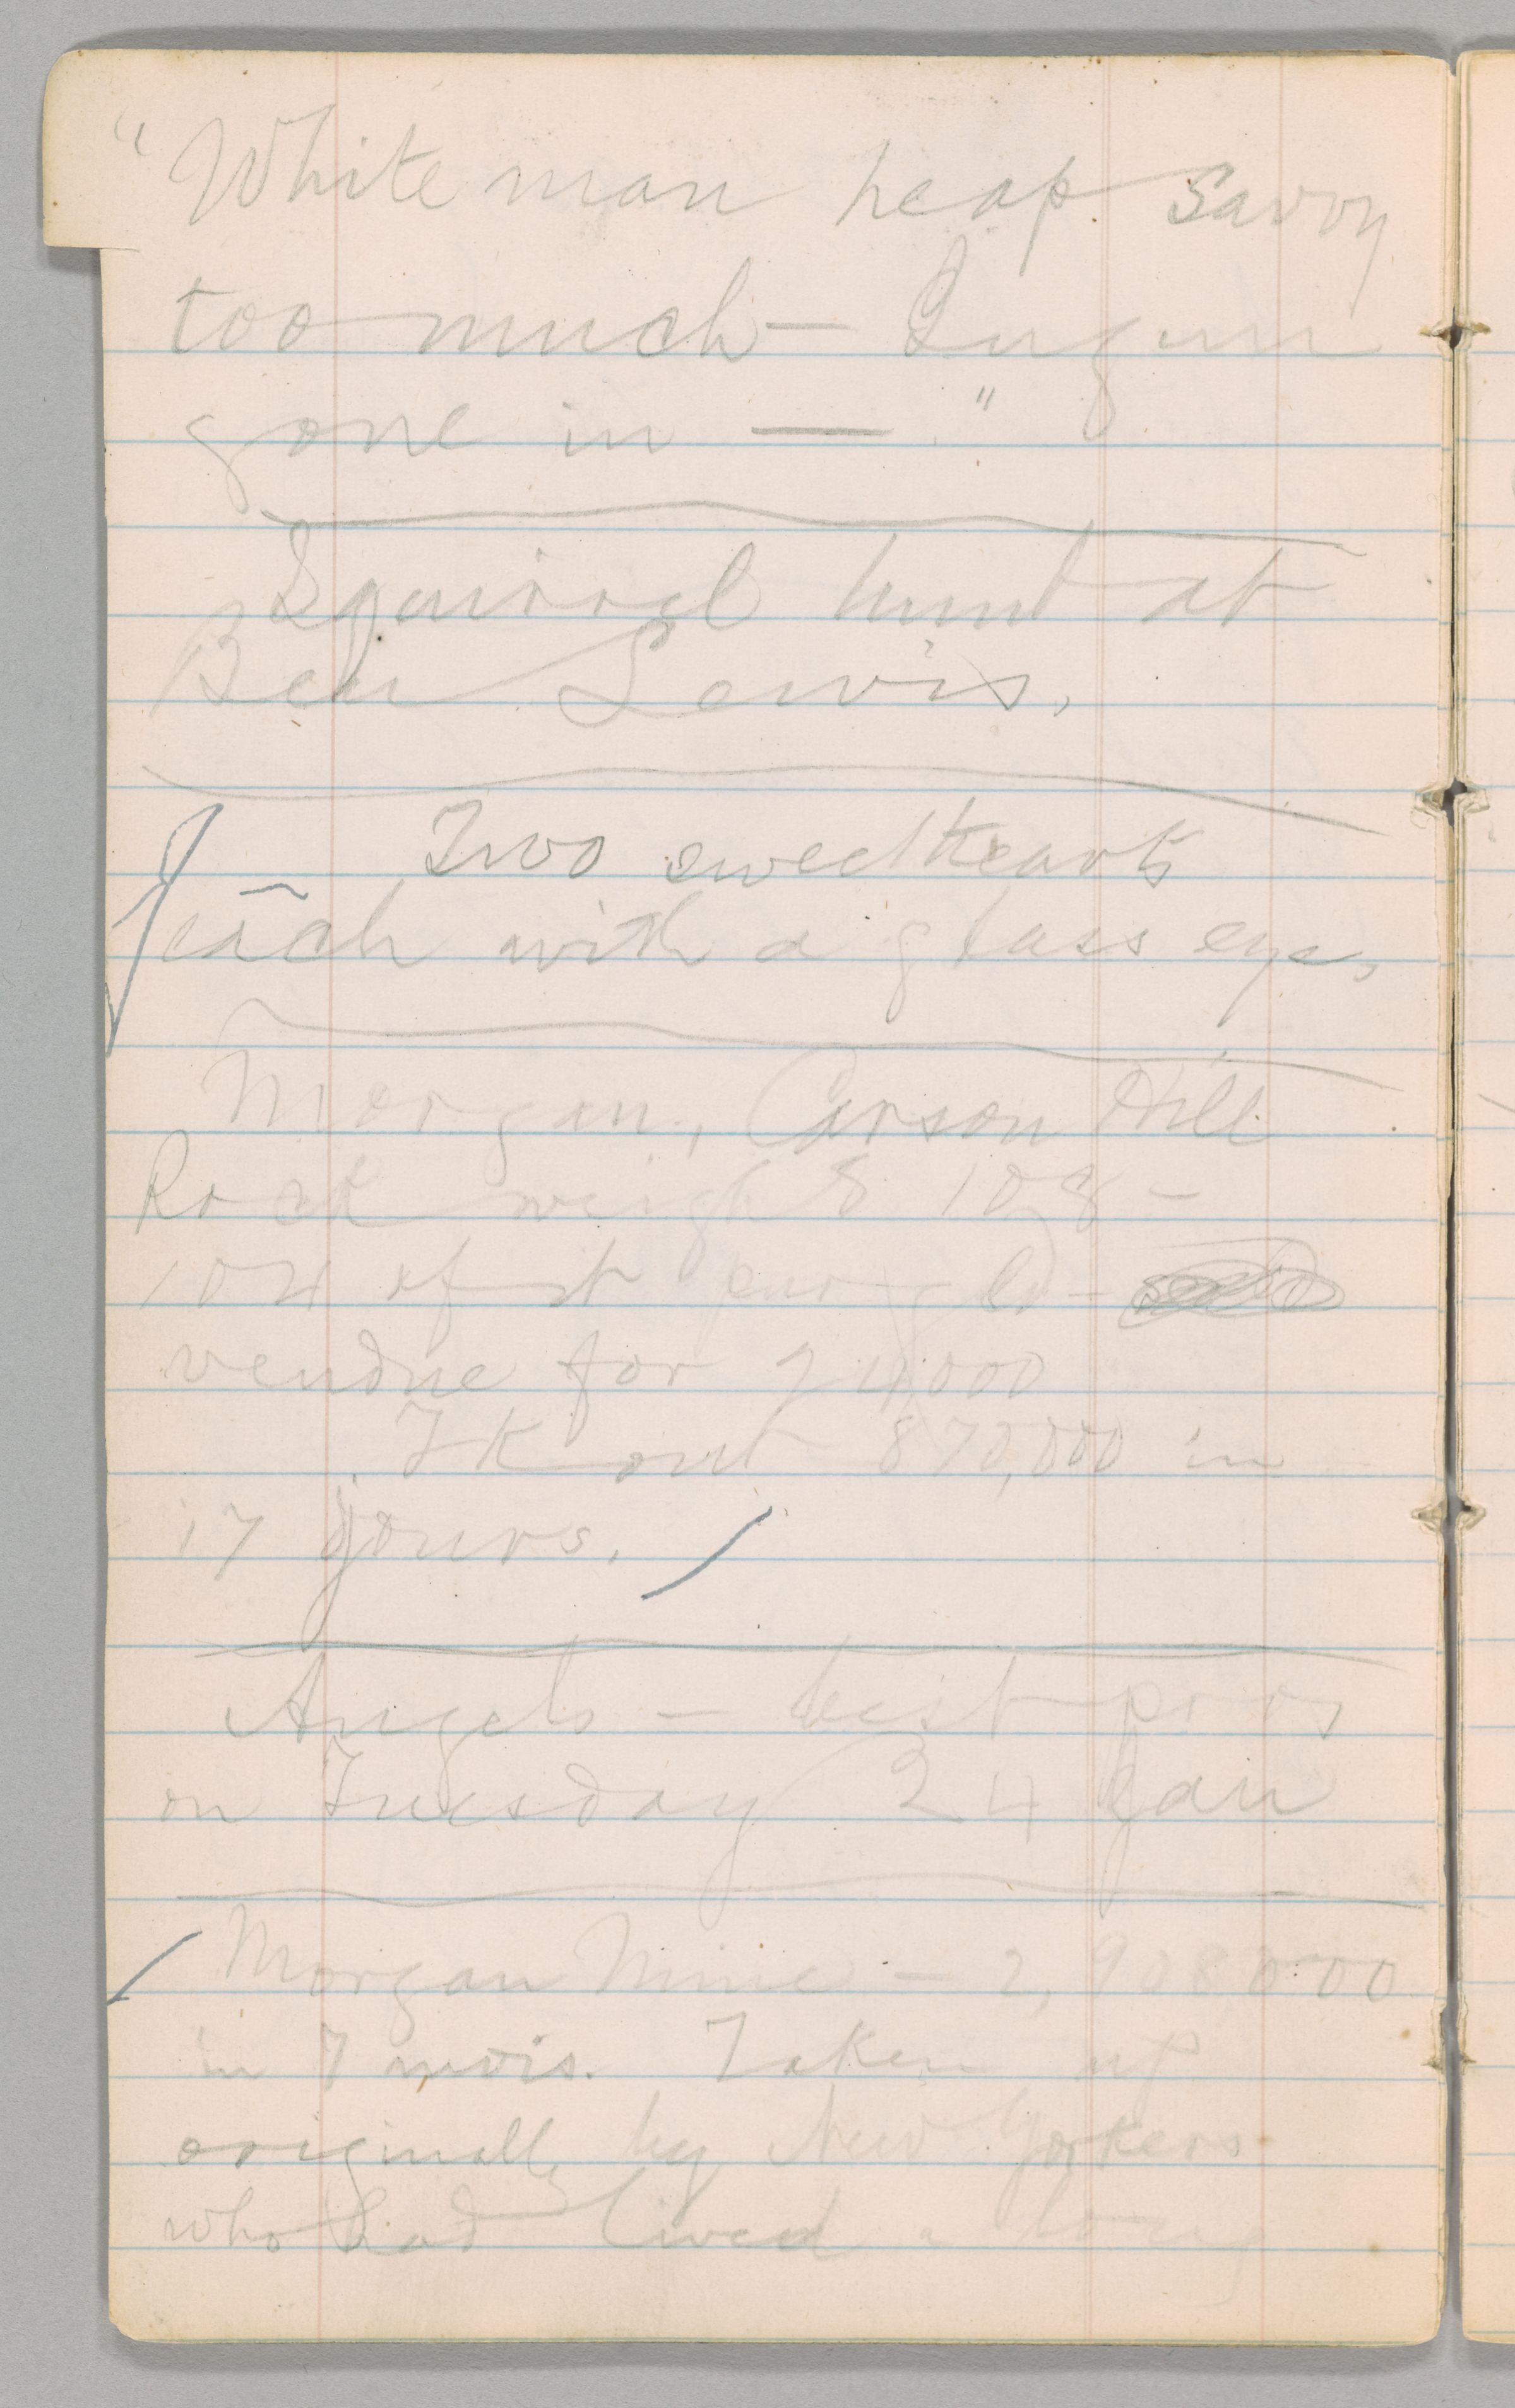 "White man heap savvy
too much — Injun
gone in — "
Squirrel hunt at
Ben Lewis,
Two sweethearts
each with a glass eye,
Morgan, Carson Hill
Rock weighs 108 –
104 of it pur gld –
vendue for 24,000
Tk out 870,000 in
17 jours.
Angels – best pros
on Tuesday 24 Jan
Morgan Mine – 2,908000
in 7 mois. Taken up
originally by New Yorkers
who had lived a long